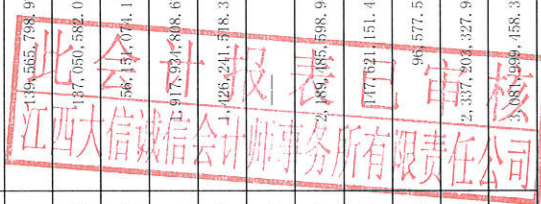 139,565,798.9
137,050,582.0
156,152,074.1
1,917,934,808.6
1,426,241,518.3
—
2,189,485,598.9
147,621,151.4
96,577.5
2,337,203,327.9
3,081,999,458.3
此会计报表已审核
江西大信诚信会计师事务所有限责任公司